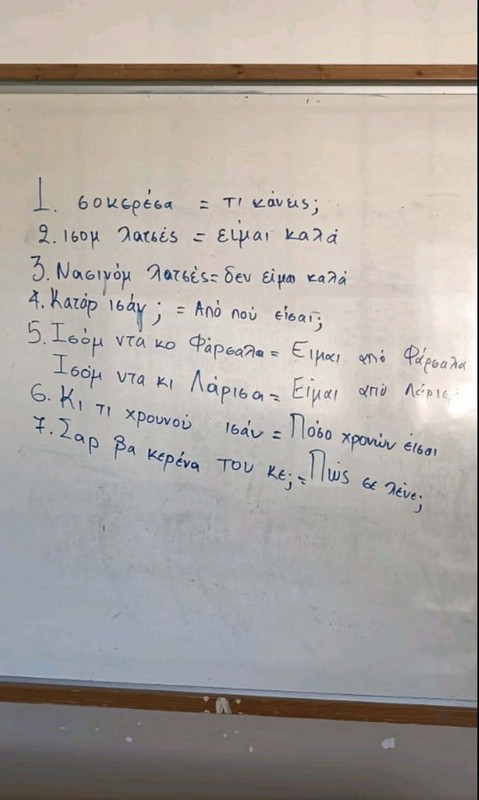 1. σοκερέσα = τι κάνεις;
2. ισομ λατσές = είμαι καλά
3. Νασιμόμ λατσές = δεν είμαι καλά
4. Κατάρ ισάν ; = Από πού είσαι;
5. Ισόμ ντα κο Φάρσαλα = Ειμαι από Φάρσαλα
Ισόμ ντα κι Λάρισα = Είμαι από Λάρισ
6. Κι τι χρουνού ισάν = Πόσο χρονών είσαι
7. Σαρ βα κερένα του κε; = Πώς σε λένε;